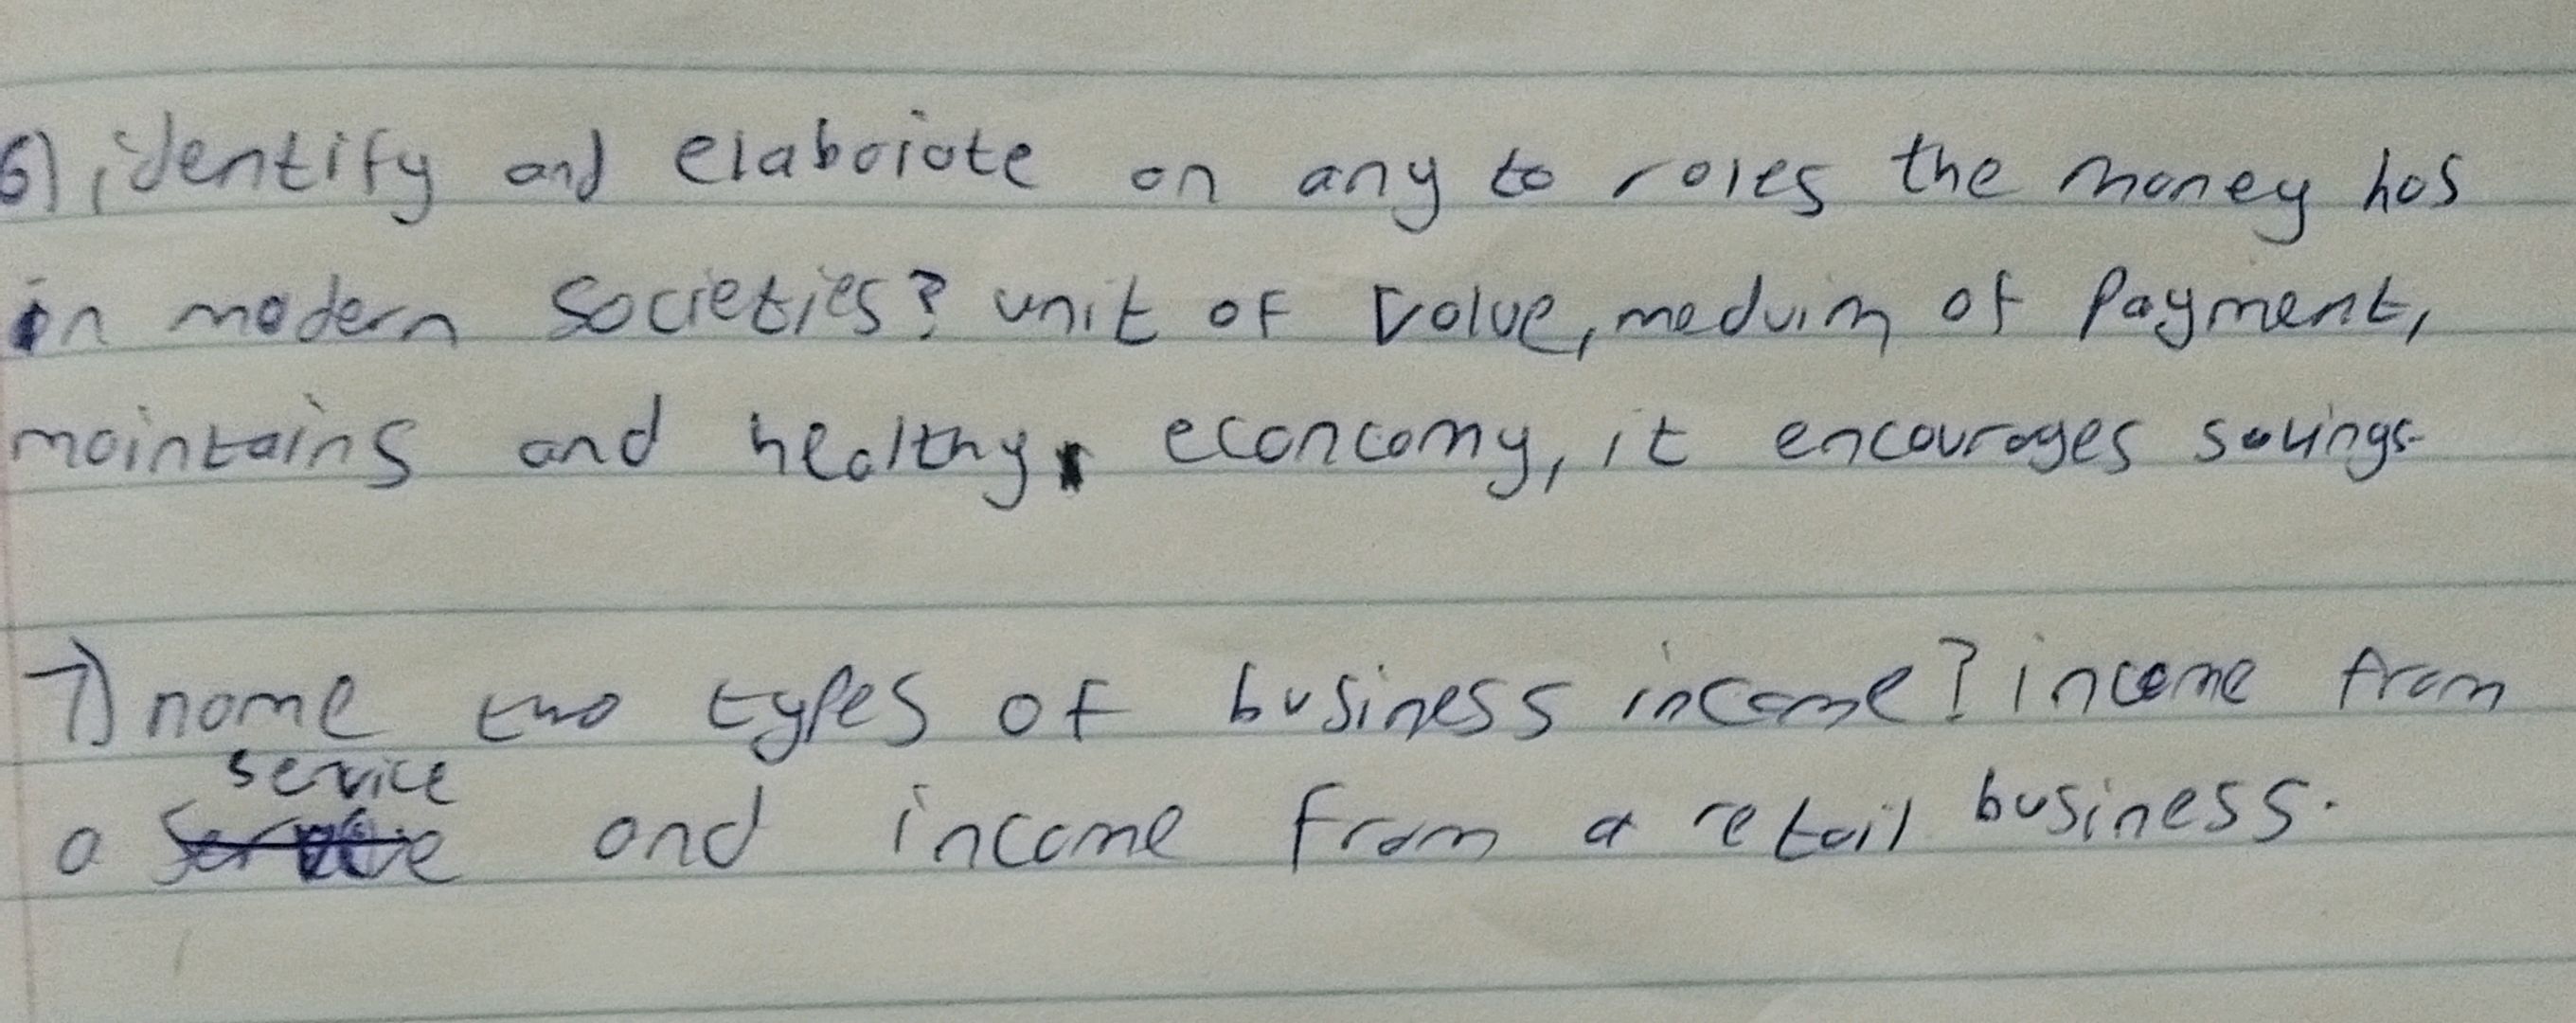 6) identify and elaboriate on any to roles the money has
in modern societies? unit of value, meduim of payment,
maintains and healthy economy, it encourages savings
7) name two types of business income? income from
service
a and income from a retail business.